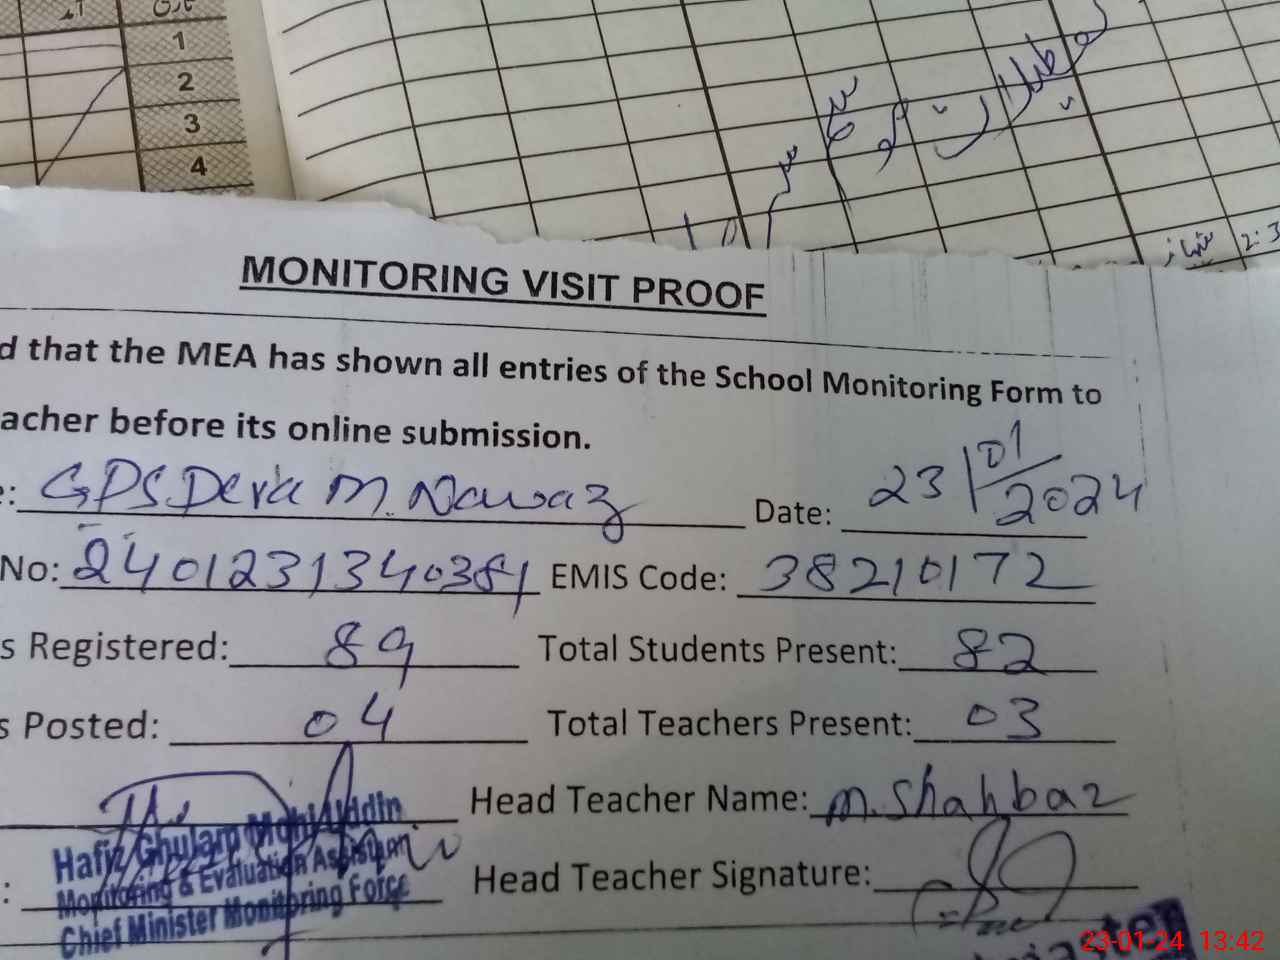 1
2
3
4
2:3
MONITORING VISIT PROOF
d that the MEA has shown all entries of the School Monitoring Form to
acher before its online submission.
e: GPS Dera M. Nawaz Date: 23/01/2024
No: 2401231340381 EMIS Code: 38210172
s Registered: 89 Total Students Present: 82
s Posted: 04 Total Teachers Present: 03
Head Teacher Name: M. Shahbaz
Hafiz Ghulam Mohi Uddin
Monitoring & Evaluation Assistant
Chief Minister Monitoring Force
: Head Teacher Signature:
23-01-24 13:42